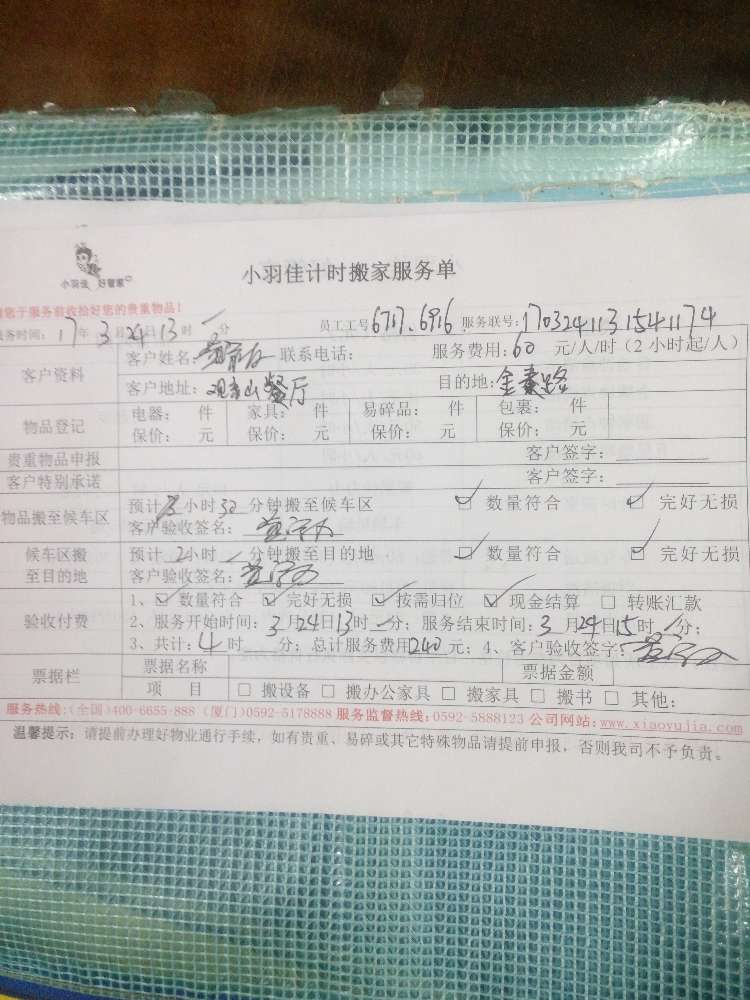 小羽佳 好管家
小羽佳计时搬家服务单
请您于服务前收拾好您的贵重物品！
服务时间：17年3月24日13时 分 员工工号6717、6916 服务联号：170324113154 1174
客户资料
客户姓名： 联系电话： 服务费用：60 元/人/时（2 小时起/人）
客户地址：观音山餐厅 目的地：金 路
物品登记
电器： 件 家具： 件 易碎品： 件 包裹： 件
保价： 元 保价： 元 保价： 元 保价： 元
贵重物品申报 客户签字：
客户特别承诺 客户签字：
物品搬至候车区
预计 小时30 分钟搬至候车区 ☑ 数量符合 ☑ 完好无损
客户验收签名：
候车区搬至目的地
预计 2小时 分钟搬至目的地 ☑ 数量符合 ☑ 完好无损
客户验收签名：
验收付费
1、☑ 数量符合 ☑ 完好无损 ☑ 按需归位 ☑ 现金结算 □ 转账汇款
2、服务开始时间：3月24日13时 分；服务结束时间：3月24日15时 分；
3、共计：4时 分；总计服务费用240元；4、客户验收签字：
票据栏
票据名称 票据金额
项 目 □ 搬设备 □ 搬办公家具 □ 搬家具 □ 搬书 □ 其他：
服务热线：(全国)400-6655-888 (厦门)0592-5178888 服务监督热线：0592-5888123 公司网站：www.xiaoyujia.com
温馨提示：请提前办理好物业通行手续，如有贵重、易碎或其它特殊物品请提前申报，否则我司不予负责。